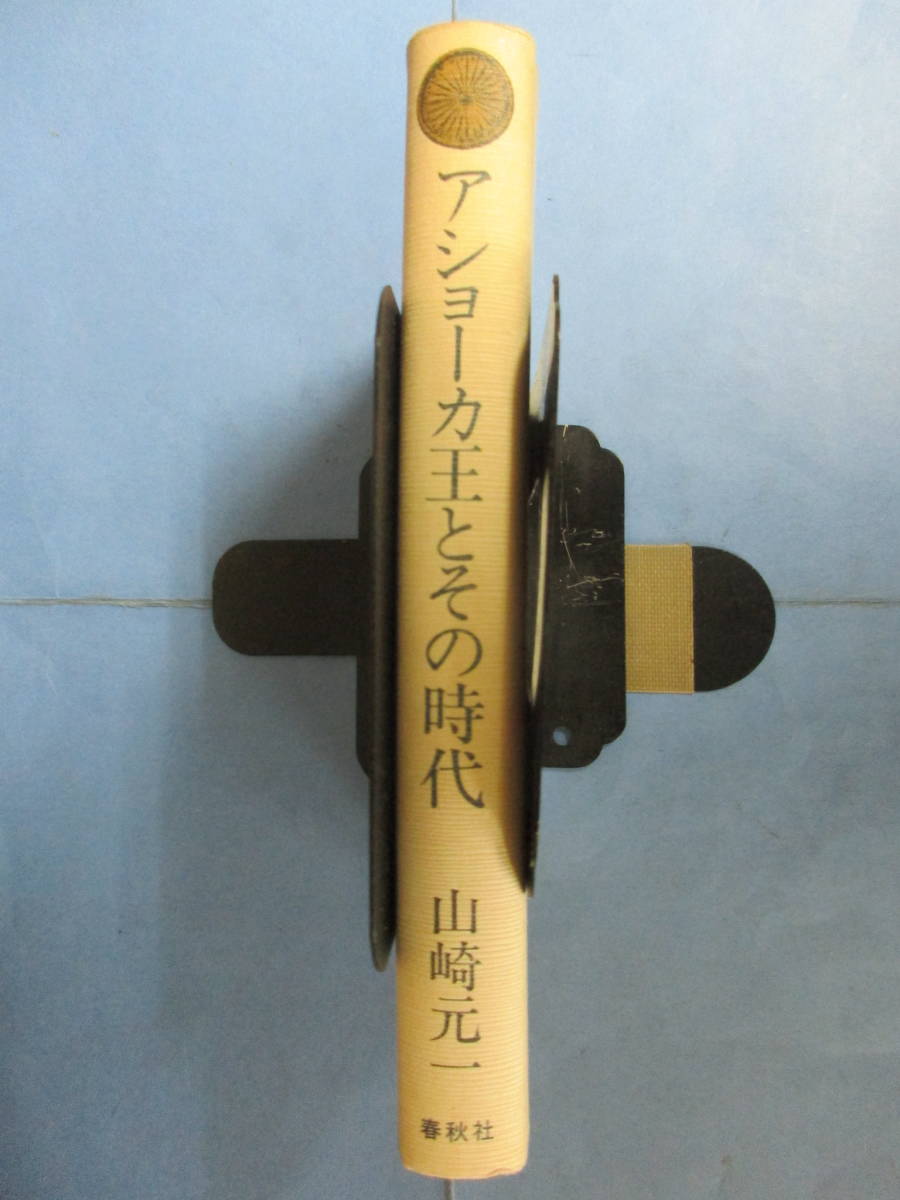 アショーカ王とその時代
山崎元一
春秋社